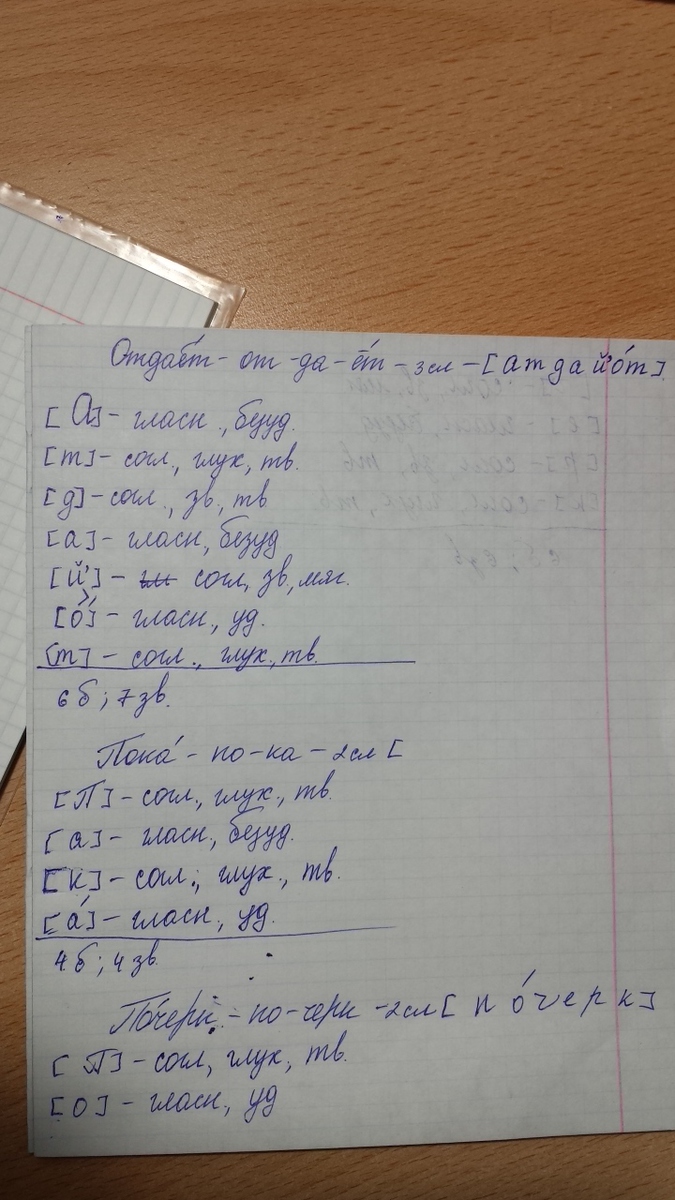 Отдаёт - от - да - ёт - 3 сл - [ а т д а й' о́ т ]
[ а ] - гласн., безуд.
[ т ] - согл., глух., тв.
[ д ] - согл., зв., тв
[ а ] - гласн., безуд
[ й' ] - согл., зв., мяг.
[ о́ ] - гласн., уд.
[ т ] - согл., глух., тв.
6 б; 7 зв.
Пока́ - по - ка - 2 сл [
[ П ] - согл., глух., тв.
[ а ] - гласн., безуд.
[ к ] - согл., глух., тв.
[ а́ ] - гласн., уд.
4 б; 4 зв.
По́черк - по - черк - 2 сл [ п о́ ч е р к ]
[ П ] - согл., глух., тв.
[ о ] - гласн., уд